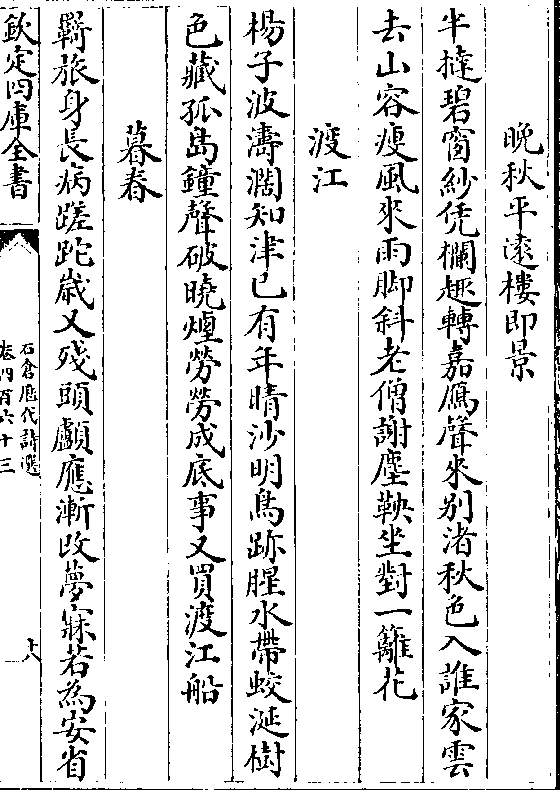 晚秋平遠樓即景
半撻碧窗紗凭欄趣轉嘉鴈聲來別渚秋色入誰家雲
去山容瘦風來雨脚斜老僧謝塵鞅坐對一籬花
渡江
楊子波濤濶知津已有年晴沙明鳥跡腥水帶蛟涎樹
色藏孤島鐘聲破曉煙勞勞成底事又買渡江船
暮春
羇旅身長病蹉跎歲又殘頭顱應漸改夢寐若為安省
欽定四庫全書
石倉歷代詩選
卷四百六十三
十八